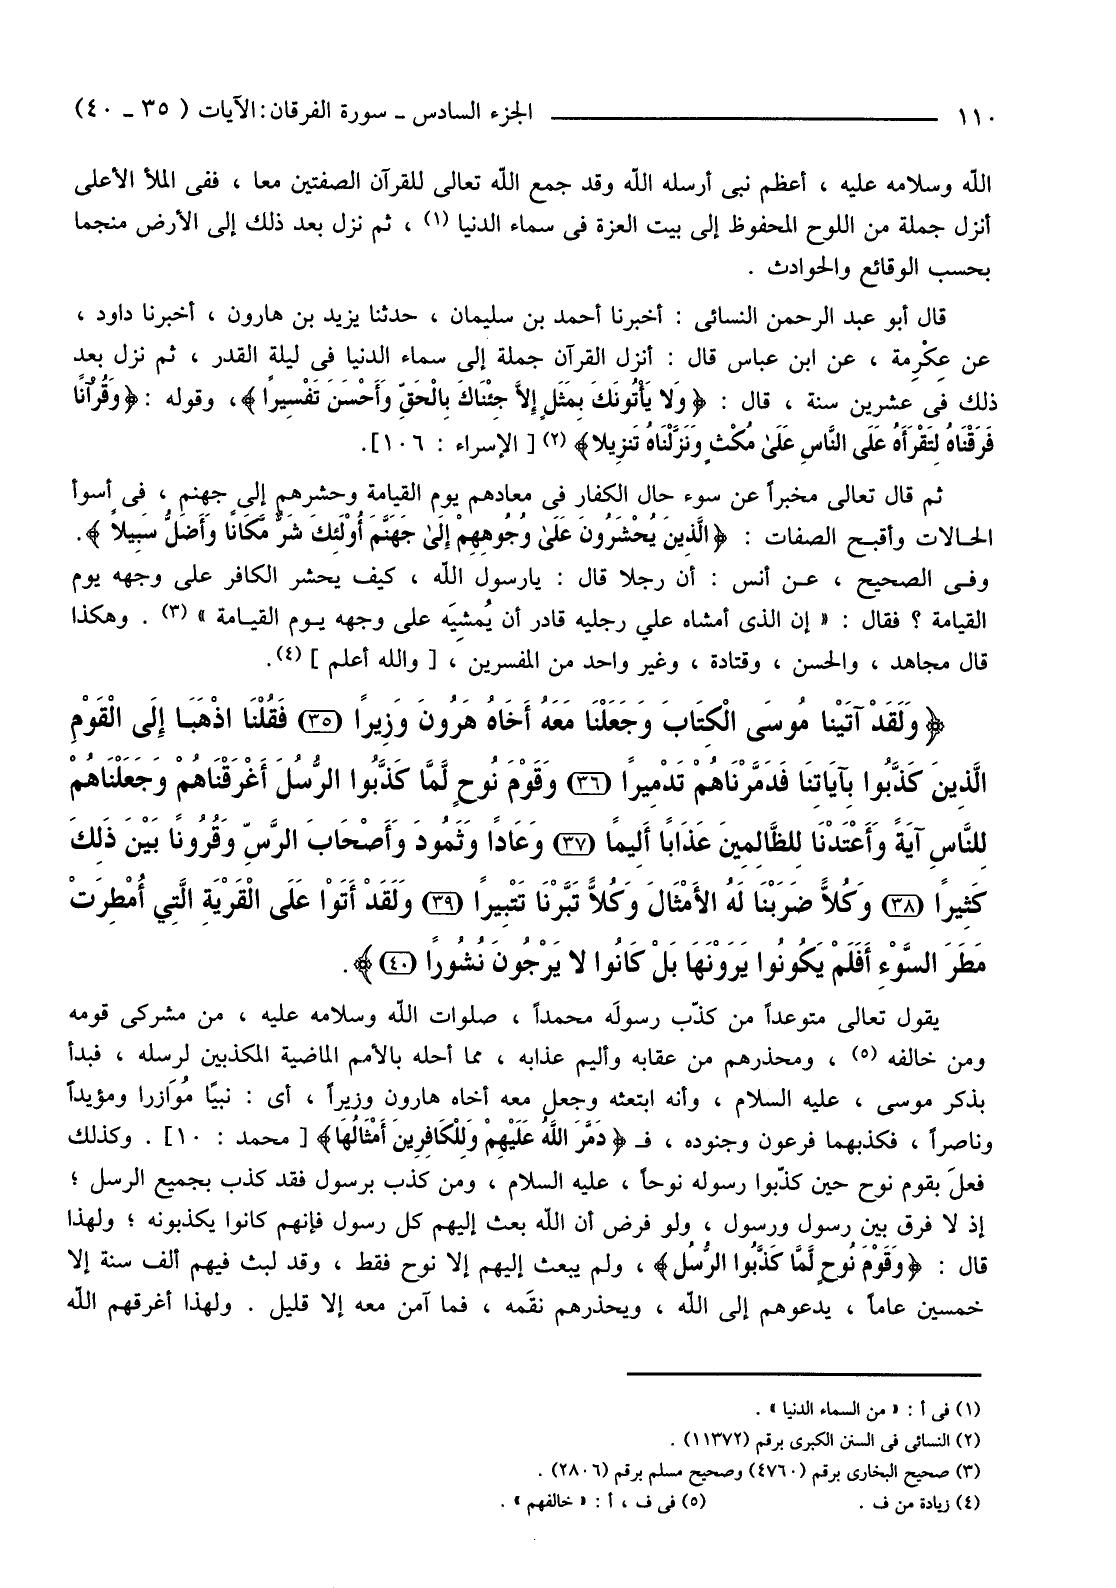 ١١٠ ـــــــ الجزء السادس ـ سورة الفرقان: الآيات ( ٣٥ ـ ٤٠)
الله وسلامه عليه ، أعظم نبى أرسله الله وقد جمع الله تعالى للقرآن الصفتين معا ، ففى الملأ الأعلى
أنزل جملة من اللوح المحفوظ إلى بيت العزة فى سماء الدنيا (١) ، ثم نزل بعد ذلك إلى الأرض منجما
بحسب الوقائع والحوادث .
قال أبو عبد الرحمن النسائى : أخبرنا أحمد بن سليمان ، حدثنا يزيد بن هارون ، أخبرنا داود ،
عن عكْرِمة ، عن ابن عباس قال : أنزل القرآن جملة إلى سماء الدنيا فى ليلة القدر ، ثم نزل بعد
ذلك فى عشرين سنة ، قال : ﴿ وَلا يَأْتُونَكَ بِمَثَلٍ إِلاَّ جِئْنَاكَ بِالْحَقِّ وَأَحْسَنَ تَفْسِيرًا ﴾، وقوله :﴿ وَقُرْآنًا
فَرَقْنَاهُ لِتَقْرَأَهُ عَلَى النَّاسِ عَلَىٰ مُكْثٍ وَنَزَّلْنَاهُ تَنزِيلا﴾ (٢) [ الإسراء : ١٠٦].
ثم قال تعالى مخبراً عن سوء حال الكفار فى معادهم يوم القيامة وحشرهم إلى جهنم ، فى أسوأ
الحالات وأقبح الصفات : ﴿ الَّذِينَ يُحْشَرُونَ عَلَىٰ وُجُوهِهِمْ إِلَىٰ جَهَنَّمَ أُوْلَئِكَ شَرٌّ مَّكَانًا وَأَضَلُّ سَبِيلاً ﴾.
وفى الصحيح ، عن أنس : أن رجلا قال : يارسول الله ، كيف يحشر الكافر على وجهه يوم
القيامة ؟ فقال : « إن الذى أمشاه علي رجليه قادر أن يُمشيَه على وجهه يوم القيامة » (٣) . وهكذا
قال مجاهد ، والحسن ، وقتادة ، وغير واحد من المفسرين ، [ والله أعلم ] (٤).
﴿ وَلَقَدْ آتَيْنا مُوسَى الْكِتَابَ وَجَعَلْنَا مَعَهُ أَخَاهُ هَرُونَ وَزِيرًا (٣٥) فَقُلْنَا اذْهَبَا إِلَى الْقَوْمِ
الَّذِينَ كَذَّبُوا بِآيَاتِنَا فَدَمَّرْنَاهُمْ تَدْمِيرًا (٣٦) وَقَوْمَ نُوحٍ لَّمَّا كَذَّبُوا الرُّسُلَ أَغْرَقْنَاهُمْ وَجَعَلْنَاهُمْ
لِلنَّاسِ آيَةً وَأَعْتَدْنَا لِلظَّالِمِينَ عَذَابًا أَلِيمًا (٣٧) وَعَادًا وَثَمُودَ وَأَصْحَابَ الرَّسِّ وَقُرُونًا بَيْنَ ذَلِكَ
كَثِيرًا (٣٨) وَكُلاًّ ضَرَبْنَا لَهُ الأَمْثَالَ وَكُلاًّ تَبَّرْنَا تَتْبِيرًا (٣٩) وَلَقَدْ أَتَوْا عَلَى الْقَرْيَةِ الَّتِي أُمْطِرَتْ
مَطَرَ السَّوْءِ أَفَلَمْ يَكُونُوا يَرَوْنَهَا بَلْ كَانُوا لا يَرْجُونَ نُشُورًا (٤٠) ﴾.
يقول تعالى متوعداً من كذّب رسولَه محمداً ، صلوات الله وسلامه عليه ، من مشركى قومه
ومن خالفه (٥) ، ومحذرهم من عقابه وأليم عذابه ، مما أحله بالأمم الماضية المكذبين لرسله ، فبدأ
بذكر موسى ، عليه السلام ، وأنه ابتعثه وجعل معه أخاه هارون وزيراً ، أى : نبيًا مُوَازرا ومؤيداً
وناصراً ، فكذبهما فرعون وجنوده ، فـ ﴿ دَمَّرَ اللَّهُ عَلَيْهِمْ وَلِلْكَافِرِينَ أَمْثَالُهَا﴾ [ محمد : ١٠] . وكذلك
فعلَ بقوم نوح حين كذّبوا رسوله نوحاً ، عليه السلام ، ومن كذب برسول فقد كذب بجميع الرسل ؛
إذ لا فرق بين رسول ورسول ، ولو فرض أن الله بعث إليهم كل رسول فإنهم كانوا يكذبونه ؛ ولهذا
قال : ﴿ وَقَوْمَ نُوحٍ لَّمَّا كَذَّبُوا الرُّسُل﴾ ، ولم يبعث إليهم إلا نوح فقط ، وقد لبث فيهم ألف سنة إلا
خمسين عاماً ، يدعوهم إلى الله ، ويحذرهم نقَمه ، فما آمن معه إلا قليل . ولهذا أغرقهم الله
(١) فى أ : « من السماء الدنيا » .
(٢) النسائى فى السنن الكبرى برقم (١١٣٧٢) .
(٣) صحيح البخارى برقم (٤٧٦٠) وصحيح مسلم برقم (٢٨٠٦) .
(٤) زيادة من ف . (٥) فى ف ، أ : « خالفهم » .